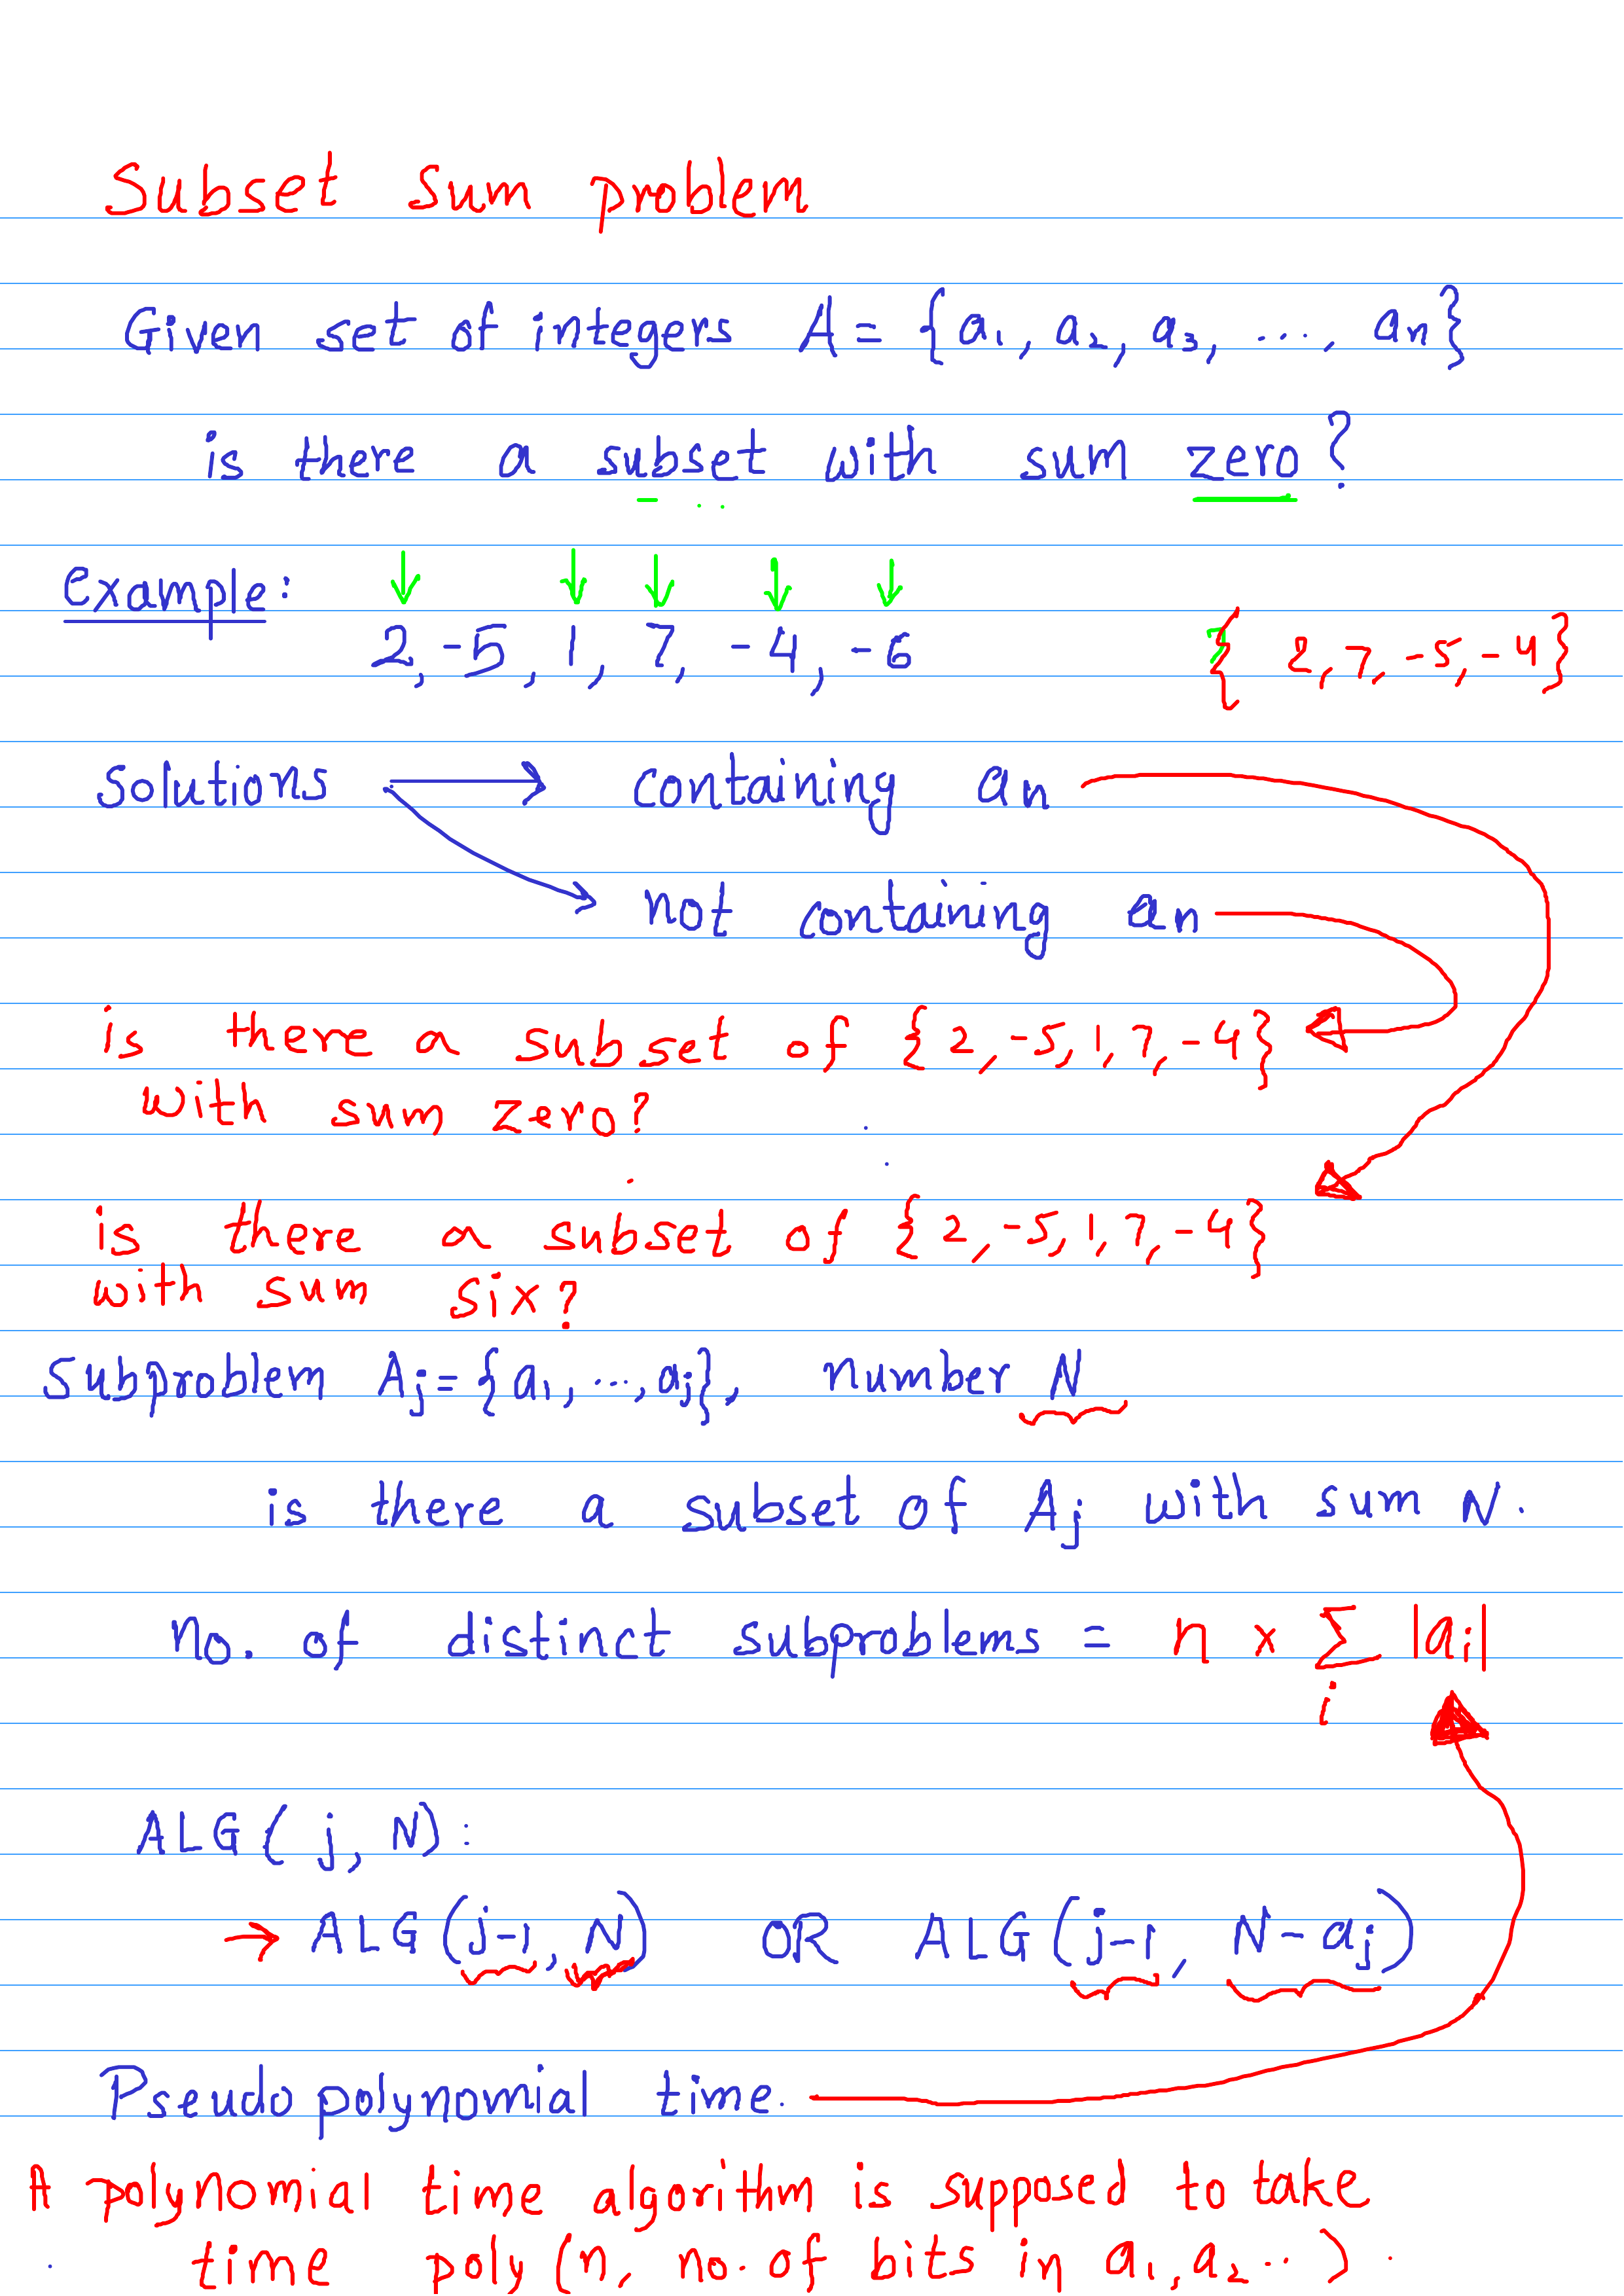 Subset sum problem
Given set of integers A = {a₁, a₂, a₃, ..., aₙ}
is there a subset with sum zero?
example:
2, -5, 1, 7, -4, -6 { 2, 7, -5, -4}
solutions → containing aₙ
not containing aₙ
is there a subset of {2, -5, 1, 7, -4}
with sum zero?
is there a subset of {2, -5, 1, 7, -4}
with sum six?
Subproblem Aⱼ = {a₁, ..., aⱼ}, number N
is there a subset of Aⱼ with sum N.
no. of distinct subproblems = n × ∑ |aᵢ|
i
ALG( j, N):
→ ALG(j-1, N) OR ALG(j-1, N-aⱼ)
Pseudopolynomial time.
A polynomial time algorithm is supposed to take
time poly(n, no. of bits in a₁, a₂ ..).